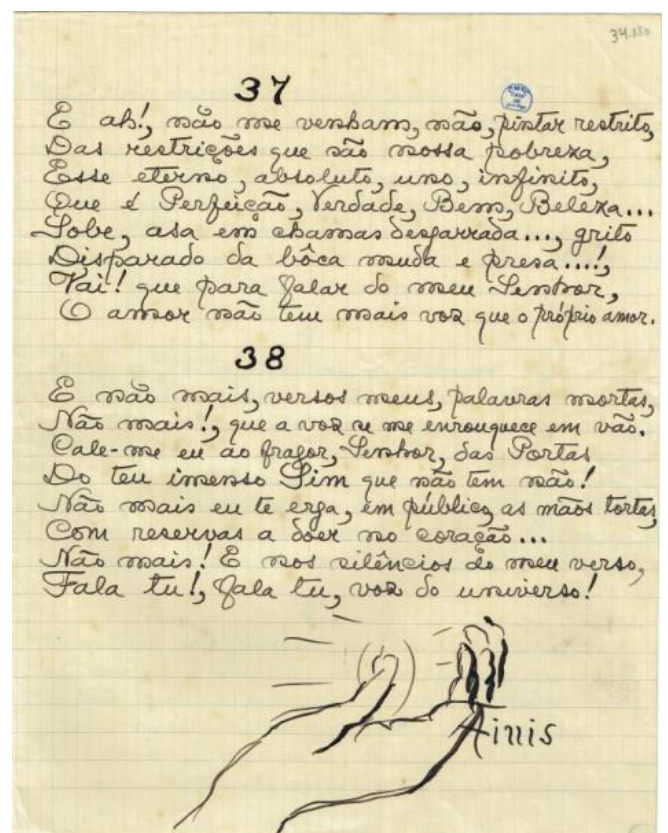 34.180
37
E ah!, não me venham, não, pintar restrito,
Das restrições que são nossa pobreza,
Esse eterno, absoluto, uno, infinito,
Que é Perfeição, Verdade, Bem, Beleza...
Sobe, asa em chamas desgarrada..., grito
Disparado da bôca muda e presa...!,
Vai! que para falar do meu Senhor,
O amor não tem mais voz que o próprio amor.
38
E não mais, versos meus, palavras mortas,
Não mais!, que a voz se me enrouquece em vão.
Cale-me eu ao fragor, Senhor, das Portas
Do teu imenso Sim que não tem não!
Não mais eu te erga, em público, as mãos tortas,
Com reservas a doer no coração...
Não mais! E nos silêncios do meu verso,
Fala tu!, fala tu, voz do universo!
Finis